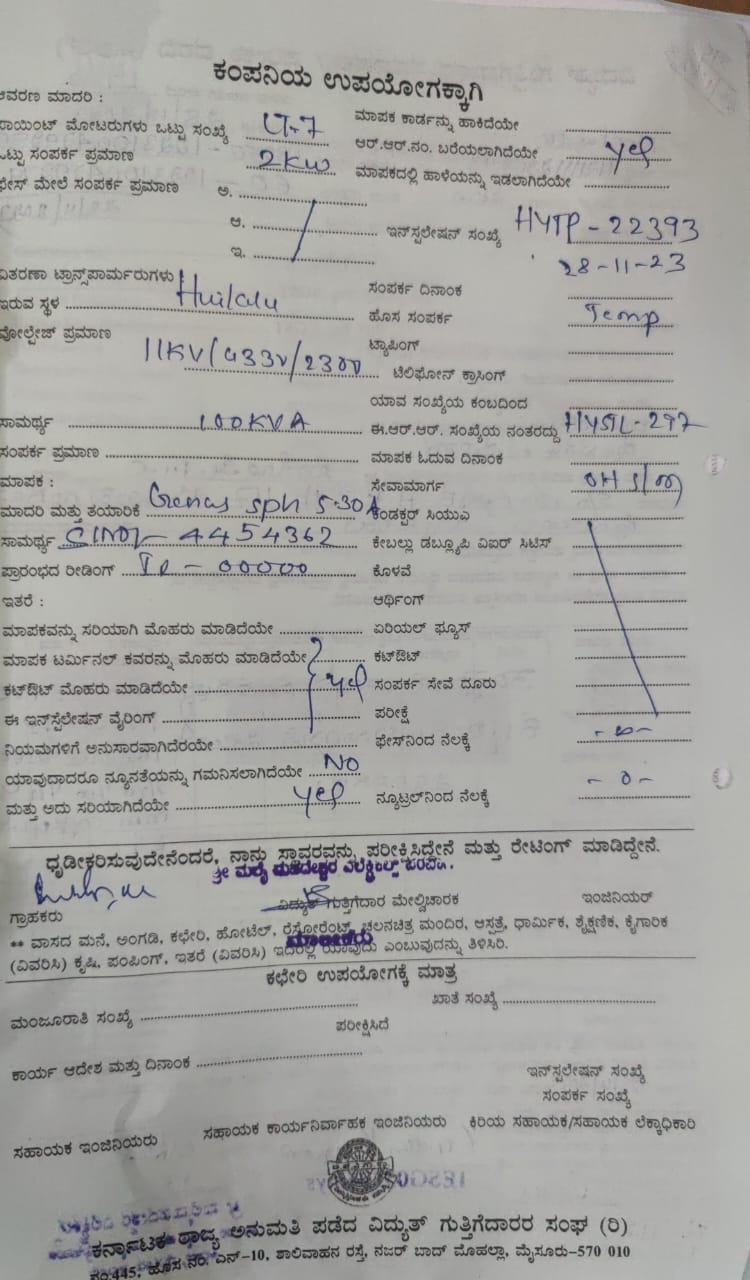 ಕಂಪನಿಯ ಉಪಯೋಗಕ್ಕಾಗಿ
ಆವರಣ ಮಾದರಿ :
ಪಾಯಿಂಟ್ ಮೋಟರುಗಳು ಒಟ್ಟು ಸಂಖ್ಯೆ LT-7 ಮಾಪಕ ಕಾರ್ಡನ್ನು ಹಾಕಿದೆಯೇ
ಒಟ್ಟು ಸಂಪರ್ಕ ಪ್ರಮಾಣ 2KW ಆರ್.ಆರ್.ನಂ. ಬರೆಯಲಾಗಿದೆಯೇ yes
ಫೇಸ್ ಮೇಲೆ ಸಂಪರ್ಕ ಪ್ರಮಾಣ ಅ. ಮಾಪಕದಲ್ಲಿ ಹಾಳೆಯನ್ನು ಇಡಲಾಗಿದೆಯೇ
ಆ. ಇನ್‌ಸ್ಟಲೇಷನ್ ಸಂಖ್ಯೆ HYTP-22393
ಇ. 28-11-23
ವಿತರಣಾ ಟ್ರಾನ್ಸ್‌ಪಾರ್ಮರುಗಳು ಸಂಪರ್ಕ ದಿನಾಂಕ
ಇರುವ ಸ್ಥಳ Huilalu ಹೊಸ ಸಂಪರ್ಕ Temp
ವೋಲ್ಟೇಜ್ ಪ್ರಮಾಣ ಟ್ಯಾಪಿಂಗ್
11KV/433V/230V ಟೆಲಿಫೋನ್ ಕ್ರಾಸಿಂಗ್
ಯಾವ ಸಂಖ್ಯೆಯ ಕಂಬದಿಂದ
ಸಾಮರ್ಥ್ಯ 100KVA ಈ.ಆರ್.ಆರ್. ಸಂಖ್ಯೆಯ ನಂತರದ್ದು HYSTL-297
ಸಂಪರ್ಕ ಪ್ರಮಾಣ ಮಾಪಕ ಓದುವ ದಿನಾಂಕ
ಮಾಪಕ : ಸೇವಾಮಾರ್ಗ OH
ಮಾದರಿ ಮತ್ತು ತಯಾರಿಕೆ Genus sph 5-30A ಕಂಡಕ್ಟರ್ ಸಿಯುಎ
ಸಾಮರ್ಥ್ಯ 4454362 ಕೇಬಲ್ಲು ಡಬ್ಲ್ಯೂಪಿ ವಿಐರ್ ಸಿಟಿಸ್
ಪ್ರಾರಂಭದ ರೀಡಿಂಗ್ IR-00000 ಕೊಳವೆ
ಇತರೆ : ಆರ್ಥಿಂಗ್
ಮಾಪಕವನ್ನು ಸರಿಯಾಗಿ ಮೊಹರು ಮಾಡಿದೆಯೇ ಏರಿಯಲ್ ಫ್ಯೂಸ್
ಮಾಪಕ ಟರ್ಮಿನಲ್ ಕವರನ್ನು ಮೊಹರು ಮಾಡಿದೆಯೇ ಕಟ್‌ಔಟ್
ಕಟ್‌ಔಟ್ ಮೊಹರು ಮಾಡಿದೆಯೇ yes ಸಂಪರ್ಕ ಸೇವೆ ದೂರು
ಈ ಇನ್‌ಸ್ಟಲೇಷನ್ ವೈರಿಂಗ್ ಪರೀಕ್ಷೆ
ನಿಯಮಗಳಿಗೆ ಅನುಸಾರವಾಗಿದೆರಯೇ ಫೇಸ್‌ನಿಂದ ನೆಲಕ್ಕೆ -∞-
ಯಾವುದಾದರೂ ನ್ಯೂನತೆಯನ್ನು ಗಮನಿಸಲಾಗಿದೆಯೇ No
ಮತ್ತು ಅದು ಸರಿಯಾಗಿದೆಯೇ yes ನ್ಯೂಟ್ರಲ್‌ನಿಂದ ನೆಲಕ್ಕೆ -0-
ಧೃಡೀಕರಿಸುವುದೇನೆಂದರೆ, ನಾನು ಸ್ಥಾವರವನ್ನು ಪರೀಕ್ಷಿಸಿದ್ದೇನೆ ಮತ್ತು ರೇಟಿಂಗ್ ಮಾಡಿದ್ದೇನೆ.
ಶ್ರೀ ಮಲೈ ಮಹದೇಶ್ವರ ಎಲೆಕ್ಟ್ರಿಕಲ್ಸ್
ಗ್ರಾಹಕರು ವಿದ್ಯುತ್ ಗುತ್ತಿಗೆದಾರ ಮೇಲ್ವಿಚಾರಕ ಇಂಜಿನಿಯರ್
** ವಾಸದ ಮನೆ, ಅಂಗಡಿ, ಕಛೇರಿ, ಹೋಟೆಲ್, ರೆಸ್ಟೋರೆಂಟ್, ಚಲನಚಿತ್ರ ಮಂದಿರ, ಆಸ್ಪತ್ರೆ, ಧಾರ್ಮಿಕ, ಶೈಕ್ಷಣಿಕ, ಕೈಗಾರಿಕೆ
ಮಾಲೀಕರು
(ವಿವರಿಸಿ) ಕೃಷಿ, ಪಂಪಿಂಗ್, ಇತರೆ (ವಿವರಿಸಿ) ಇದರಲ್ಲಿ ಯಾವುದು ಎಂಬುವುದನ್ನು ತಿಳಿಸಿರಿ.
ಕಛೇರಿ ಉಪಯೋಗಕ್ಕೆ ಮಾತ್ರ
ಮಂಜೂರಾತಿ ಸಂಖ್ಯೆ ಖಾತೆ ಸಂಖ್ಯೆ
ಪರೀಕ್ಷಿಸಿದೆ
ಕಾರ್ಯ ಆದೇಶ ಮತ್ತು ದಿನಾಂಕ
ಇನ್‌ಸ್ಟಲೇಷನ್ ಸಂಖ್ಯೆ
ಸಂಪರ್ಕ ಸಂಖ್ಯೆ
ಸಹಾಯಕ ಇಂಜಿನಿಯರು ಸಹಾಯಕ ಕಾರ್ಯನಿರ್ವಾಹಕ ಇಂಜಿನಿಯರು ಕಿರಿಯ ಸಹಾಯಕ/ಸಹಾಯಕ ಲೆಕ್ಕಾಧಿಕಾರಿ
ಕರ್ನಾಟಕ ರಾಜ್ಯ ಅನುಮತಿ ಪಡೆದ ವಿದ್ಯುತ್ ಗುತ್ತಿಗೆದಾರರ ಸಂಘ (ರಿ)
ನಂ.445, ಹೊಸ ನಂ. ಎನ್-10, ಶಾಲಿವಾಹನ ರಸ್ತೆ, ನಜರ್ ಬಾದ್ ಮೊಹಲ್ಲಾ, ಮೈಸೂರು-570 010